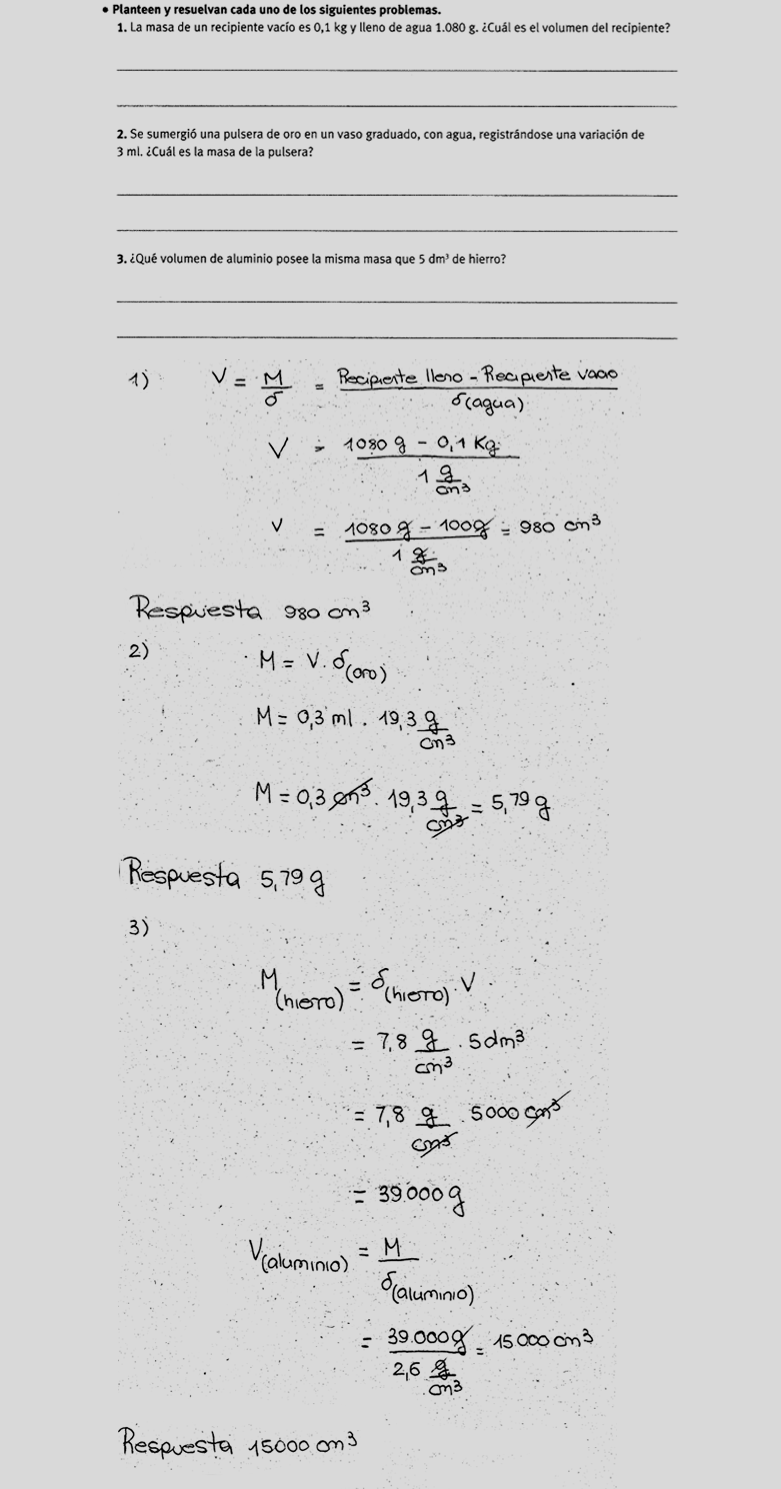 • Planteen y resuelvan cada uno de los siguientes problemas.
1. La masa de un recipiente vacío es 0,1 kg y lleno de agua 1.080 g. ¿Cuál es el volumen del recipiente?
2. Se sumergió una pulsera de oro en un vaso graduado, con agua, registrándose una variación de
3 ml. ¿Cuál es la masa de la pulsera?
3. ¿Qué volumen de aluminio posee la misma masa que 5 dm³ de hierro?
1) V = M/δ = Recipiente lleno - Recipiente vacio / δ(agua)
V = 1080 g - 0,1 Kg / 1 g/cm³
V = 1080 g - 100 g / 1 g/cm³ = 980 cm³
Respuesta 980 cm³
2) M = V. δ(oro)
M = 0,3 ml . 19,3 g/cm³
M = 0,3 cm³ . 19,3 g/cm³ = 5,79 g
Respuesta 5,79 g
3)
M(hierro) = δ(hierro) . V
= 7,8 g/cm³ . 5 dm³
= 7,8 g/cm³ . 5000 cm³
= 39.000 g
V(aluminio) = M/δ(aluminio)
= 39.000 g / 2,6 g/cm³ = 15000 cm³
Respuesta 15000 cm³